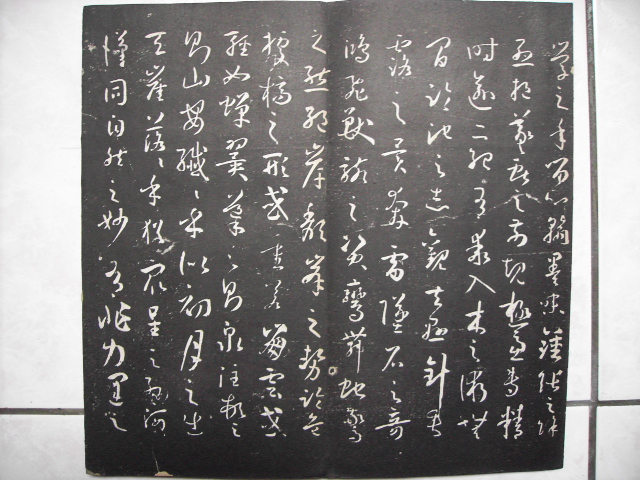 學之年留心翰墨味鍾張之餘
烈挹羲獻之前規極慮專精
時逾二紀有乖入木之術無
間臨池之志觀夫懸針垂
露之異奔雷墜石之奇
鴻飛獸駭之資鸞舞蛇驚
之態絕岸頹峯之勢臨危
據槁之形或重若崩雲或
輕如蟬翼導之則泉注頓之
則山安纖纖乎似初月之出
天崖落落乎猶眾星之列河
漢同自然之妙有非力運之